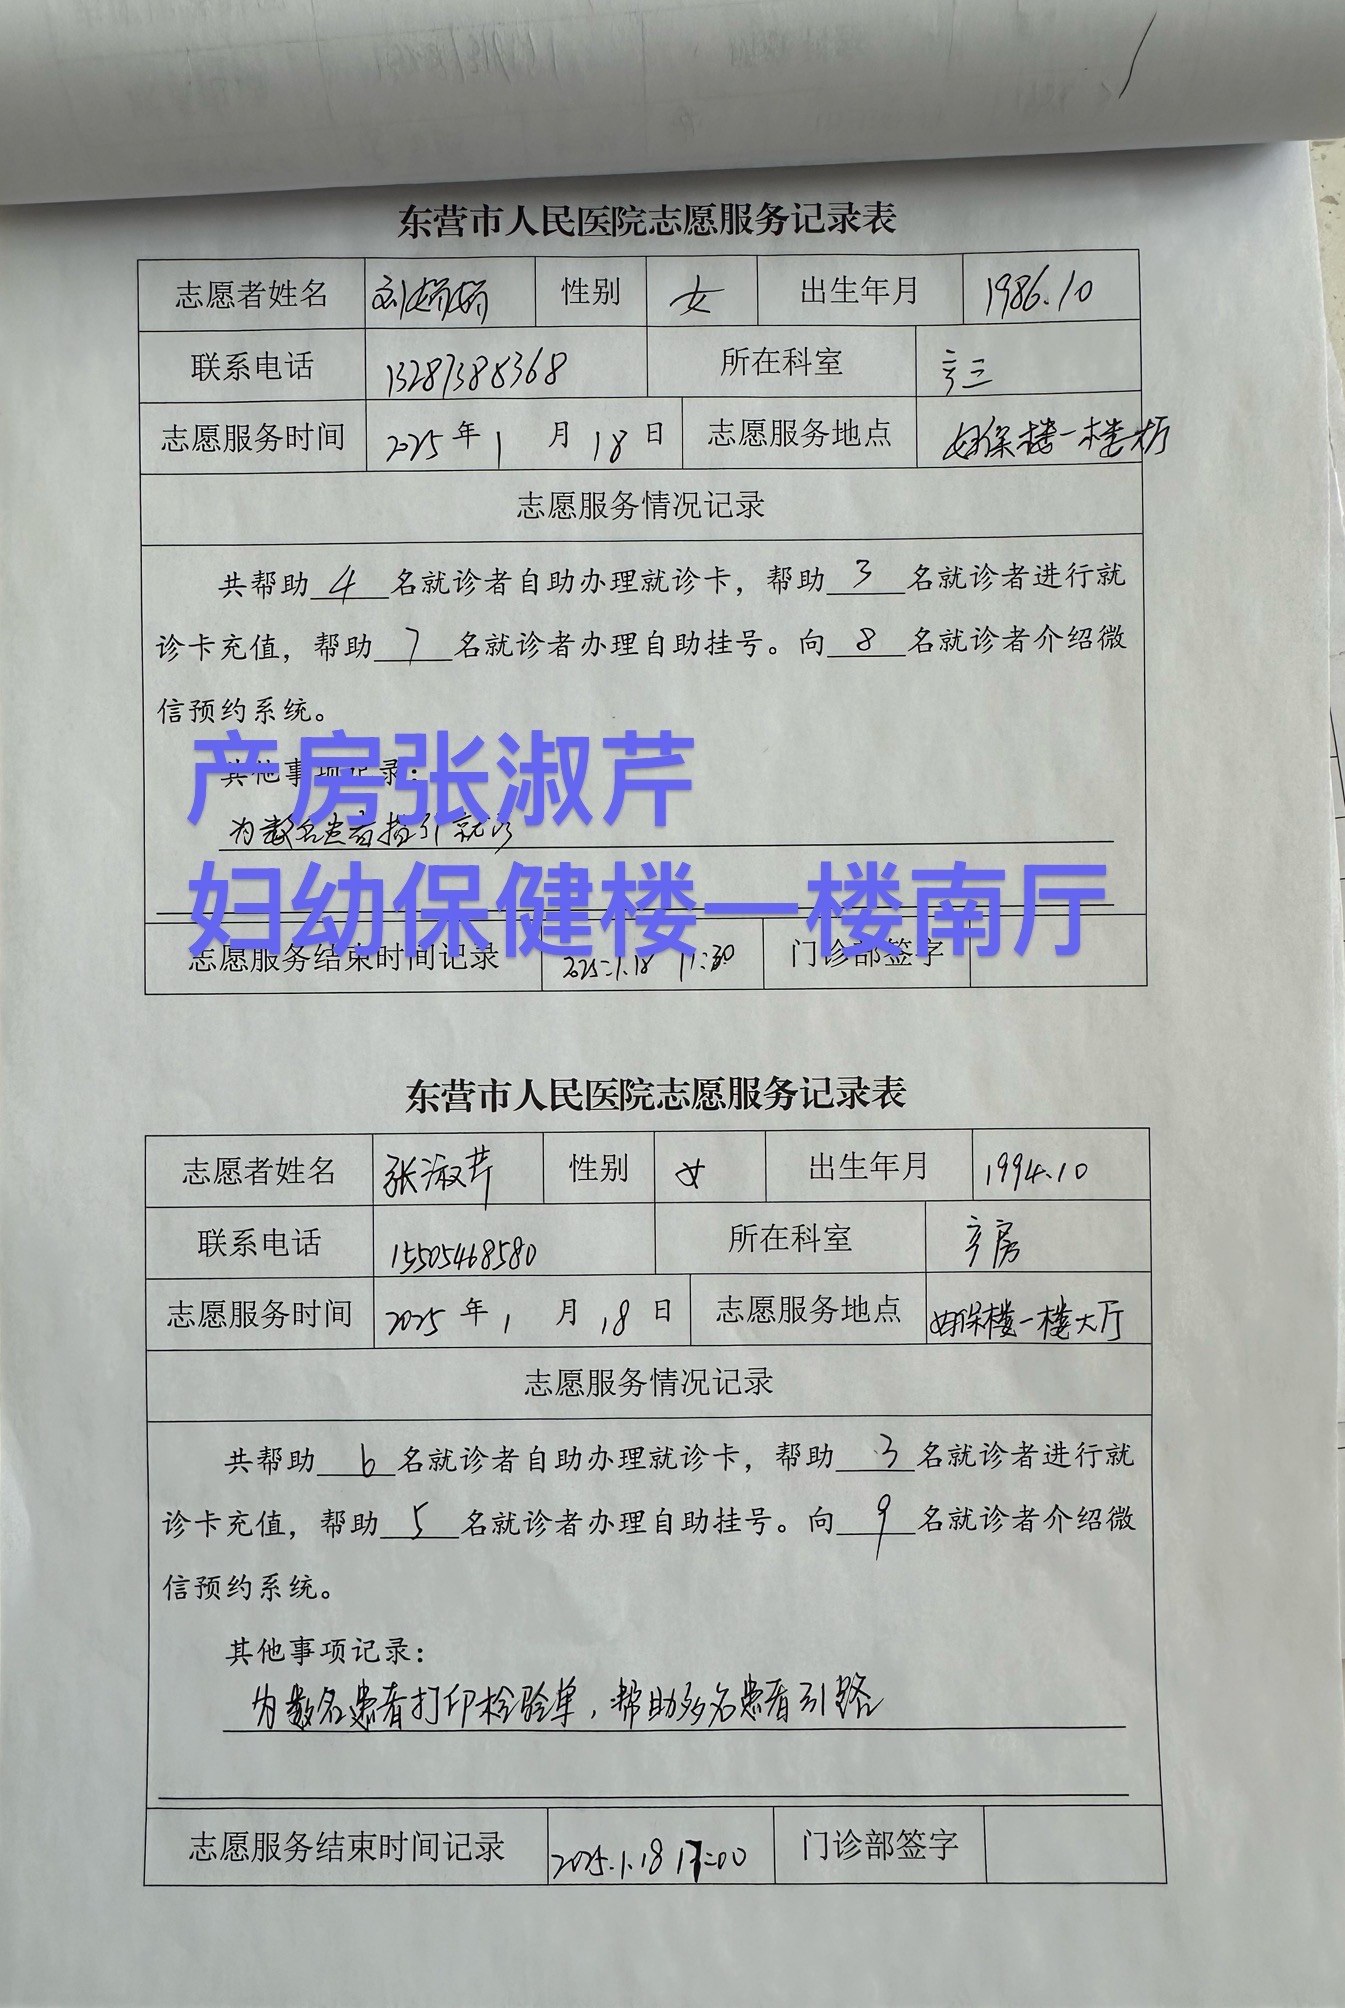 东营市人民医院志愿服务记录表
志愿者姓名 刘娇娇 性别 女 出生年月 1986.10
联系电话 13287388368 所在科室 产三
志愿服务时间 2025年1月18日 志愿服务地点 妇保楼一楼大厅
志愿服务情况记录
共帮助4名就诊者自助办理就诊卡，帮助3名就诊者进行就
诊卡充值，帮助7名就诊者办理自助挂号。向8名就诊者介绍微
信预约系统。
产房张淑芹
其他事项记录：
为数名患者指引就诊
妇幼保健楼一楼南厅
志愿服务结束时间记录 2025.1.18 11:30 门诊部签字
东营市人民医院志愿服务记录表
志愿者姓名 张淑芹 性别 女 出生年月 1994.10
联系电话 15505468580 所在科室 产房
志愿服务时间 2025年1月18日 志愿服务地点 妇保楼一楼大厅
志愿服务情况记录
共帮助6名就诊者自助办理就诊卡，帮助3名就诊者进行就
诊卡充值，帮助5名就诊者办理自助挂号。向9名就诊者介绍微
信预约系统。
其他事项记录：
为数名患者打印检验单，帮助多名患者引路
志愿服务结束时间记录 2025.1.18 17:00 门诊部签字